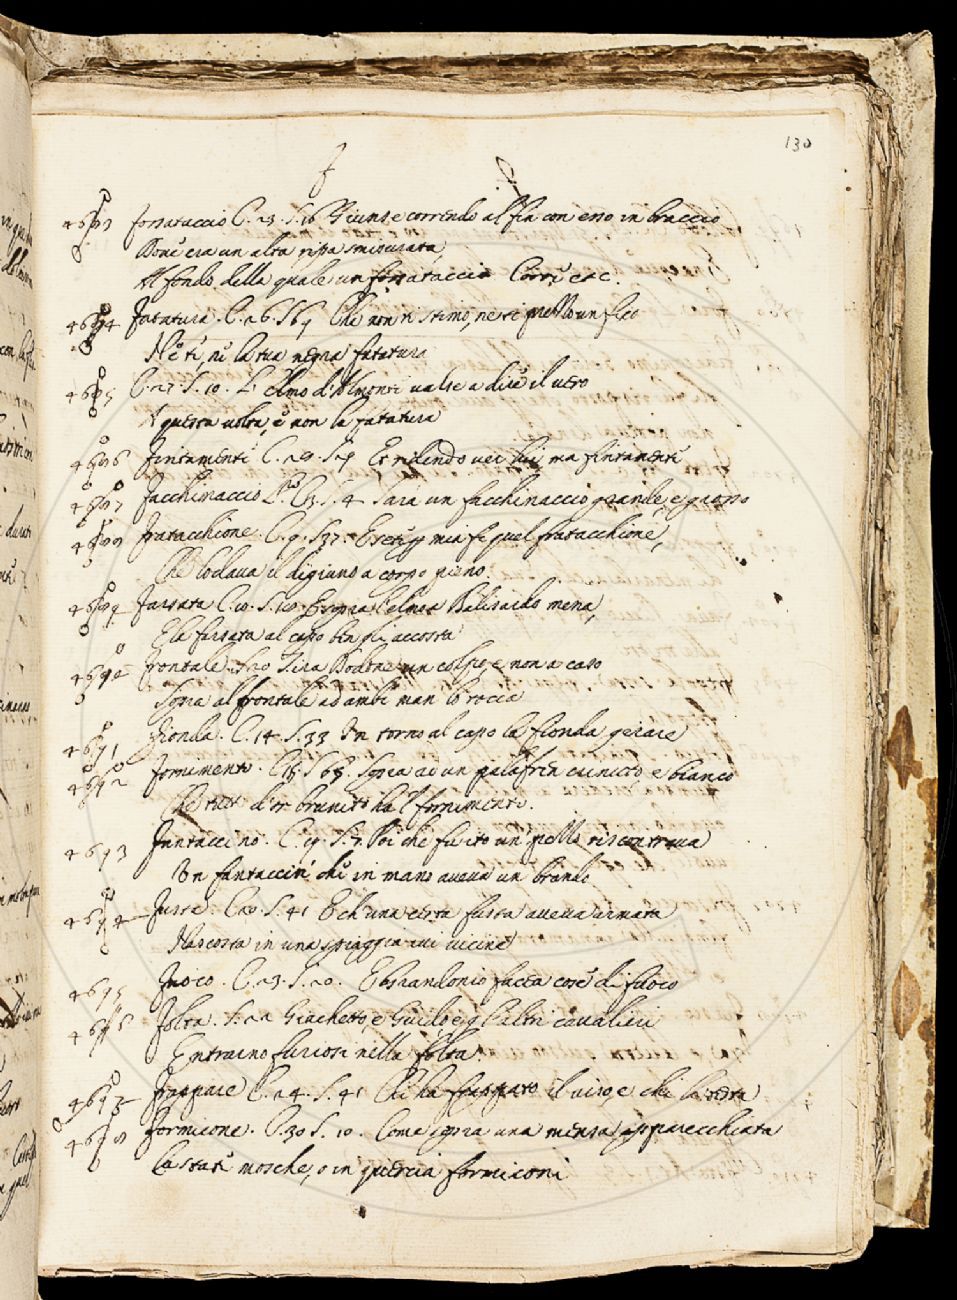 130
F
4683 Fossataccio C. 23. S. 16 Giunse correndo al fin con esso in braccio
Dove era un alta ripa smisurata,
Al fondo della quale un fossataccio Corre etc.
4684 Fatatura. C. 26. S. 6 Che non ti stimo, ne ti prezzo un fico
Ne te, ne la tua negra fatatura
4685 C. 27. S. 10. L'elmo d'Almonte valse a dire il vero
A questa volta, e non la fatatura
4686 Fintamente C. 29. S. Et ridendo ver lui, ma fintamente
4687 Facchinaccio C. 3. S. 4 Sara un facchinaccio grande, e grosso
4688 Fratacchione. C. 9. S. 37. mia fe quel fratacchione,
Che lodava il digiuno a corpo pieno.
4689 Farsata C. 10. S. E sopra l'elmo a Balisardo mena,
E la farsata al capo ben gli accosta
4690 Frontale. S. 20 Tira un colpo, e non a caso
Sopra al frontale ad ambe man lo tocca
4691 Fionda. C. 14. S. 33 In torno al capo la fionda girare
4692 Fornimento. C. 15. S. 65. Sopra ad un palafren e bianco
Che tutt' d'or brunito ha 'l fornimento.
4693 Fantaccino. C. 19. S. 7. Poi che fu ito un pezzo riscontrava
Un fantaccin' che in mano aveva un brando
4694 Fusta. C. 20. S. 41 E ch'una certa fusta aveva armata
Nascosta in una spiaggia ivi vicina
4695 Fuoco. C. 23. S. 20. facea cose di fuoco
4696 Folta. S. 22 Giachetto e Guido, e gl'altri cavalieri
Entrarno furiosi nella folta.
4697 Frappare C. 24. S. 41 Chi ha frappato il viso, e chi la testa
4698 Formicone. C. 30 S. 10. Come sopra una mensa apparecchiata
La state mosche, o in quercia formiconi